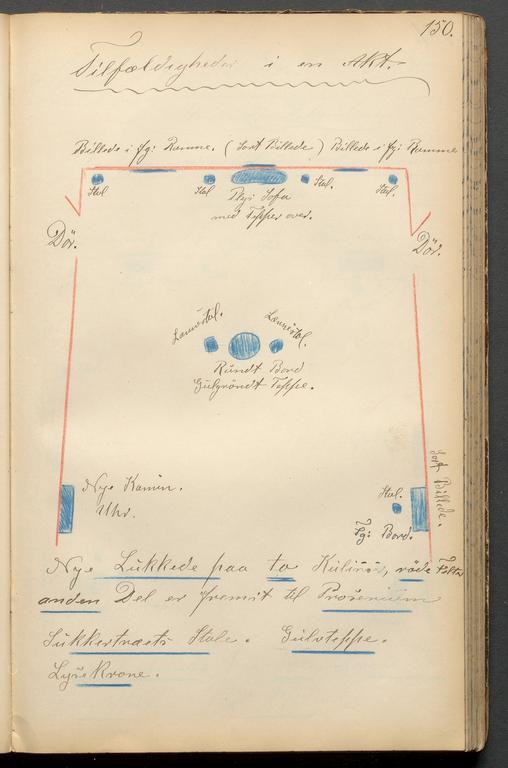 150.
Tilfældigheder i en Akt.
Billede i fg: Ramme. (Sort Billede) Billede i fg: Ramme
Stol
Stol
Stol.
Stol.
Nye Sofa
med Tepper over.
Dör.
Dör.
Lænestol.
Lænestol.
Rundt Bord
Gulgröndt Teppe.
Nye Kamin.
Uhr.
Sort Billede.
Stol.
Fg: Bord.
Nye Lukkede paa to Kulisser, röde
anden Del er fremst til Prosenium
Sukkertræets Stole. Gulvteppe.
Lysekrone.